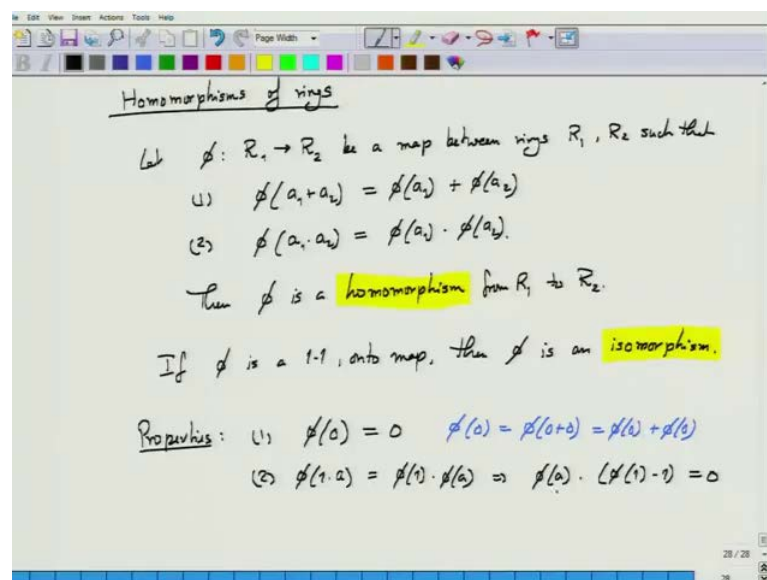 le Edit View Insert Actions Tools Help
Page Width
B I
Homomorphisms of rings
Let ϕ: R₁ → R₂ be a map between rings R₁, R₂ such that
(1) ϕ(a₁+a₂) = ϕ(a₁) + ϕ(a₂)
(2) ϕ(a₁·a₂) = ϕ(a₁) · ϕ(a₂).
Then ϕ is a homomorphism from R₁ to R₂.
If ϕ is a 1-1, onto map, then ϕ is an isomorphism.
Properties: (1) ϕ(0) = 0 ϕ(0) = ϕ(0+0) = ϕ(0) + ϕ(0)
(2) ϕ(1·a) = ϕ(1)·ϕ(a) ⇒ ϕ(a) · (ϕ(1)-1) = 0
28 / 28
28